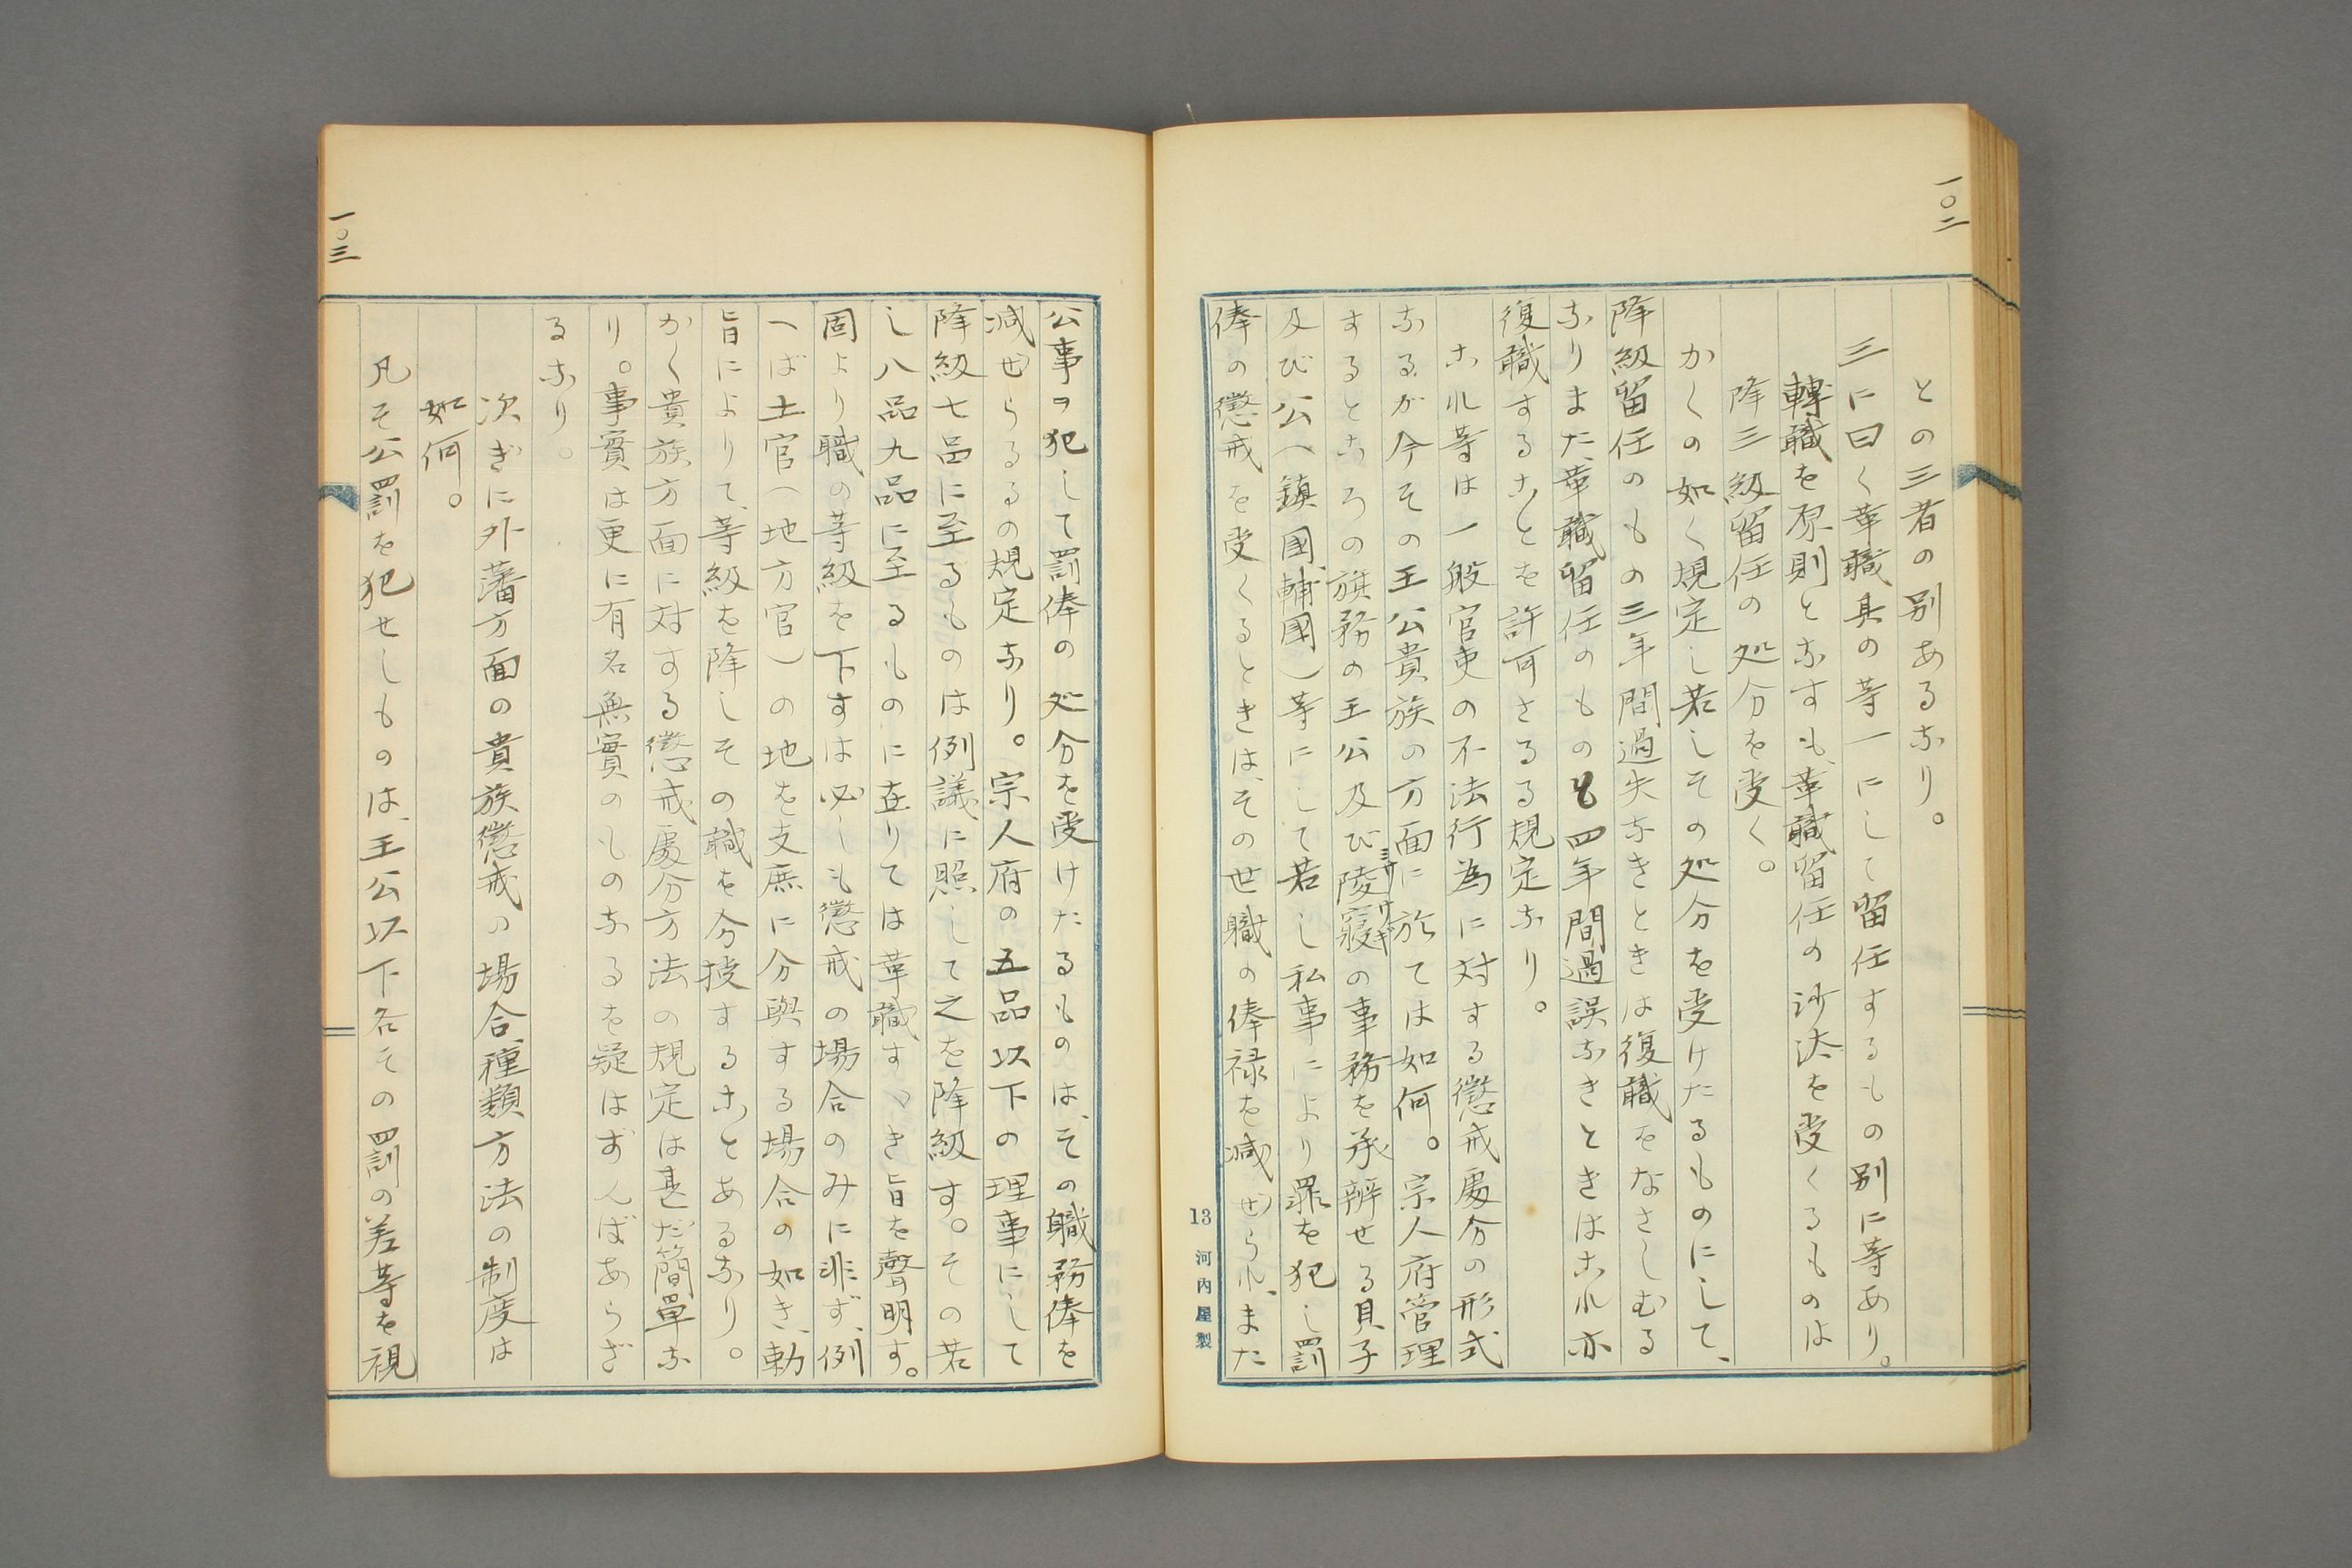 一〇二
との三者の別あるなり。
三に曰く革職其の等一にして留任するもの別に等あり。
轉職を原則となすも、革職留任の沙汰を受くるものは
降三級留任の処分を受く。
かくの如く規定し若しその処分を受けたるものにして、
降級留任のもの三年間過失なきときは復職をなさしむる
なりまた、革職留任のものも四年間過誤なきときはこれ亦
復職することを許可さるる規定なり。
これ等は一般官吏の不法行為に対する懲戒處分の形式
なるが今その王公貴族の方面に於ては如何。宗人府管理
するところの旗務の王公及び陵寝の事務を承辨せる貝子
及び公(鎮國、輔國)等にして若し私事により罪を犯し罰
俸の懲戒を受くるときは、その世職の俸禄を減ぜられ、また
13 河内屋製
一〇三
公事ヲ犯して罰俸の処分を受けたるものは、その職務俸を
減ぜらるるの規定なり。宗人府の五品以下の理事にして
降級七品に至るものは例議に照して之を降級す。その若
し八品九品に至るものに在りては革職すべき旨を聲明す。
固より職の等級を下すは必しも懲戒の場合のみに非ず、例
へば土官(地方官)の地を支庶に分與する場合の如き、勅
旨によりて、等級を降しその職を分授することあるなり。
かく貴族方面に対する懲戒處分方法の規定は甚だ簡單な
り。事實は更に有名無實のものなるを疑はずんばあらざ
るなり。
次ぎに外藩方面の貴族懲戒の場合、種類方法の制度は
如何。
凡そ公罰を犯せしものは、王公以下各その罰の差等を視